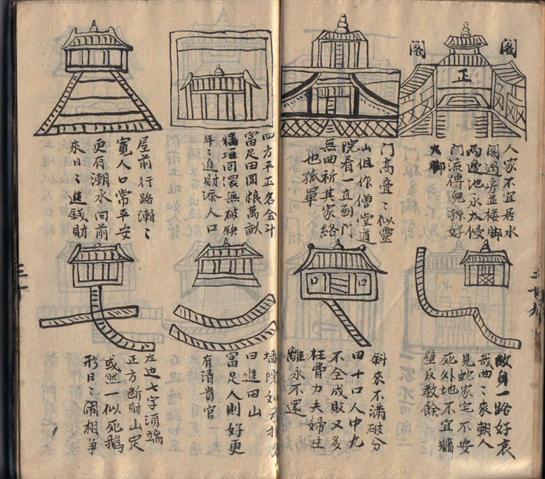 閣 閣
正
人家不宜居水
閣過房並接脚
兩邊地水太侵
門流傳兒孫好
大脚
門高疊〻似靈
山但作僧堂道
院看一直到門
無曲折其家終
也孤單
故身一路好哀
哉曲〻哀朝人
見蛇家宅不安
死外地不宜牆
壁反教餘
斜衣不滿破分
田十口人中九
不全成敗又多
枉費力夫婦生
離永不還
四方平正名金斗
富足田園糧萬畝
牆垣回環無破缺
年〻進財添人口
屋前行路漸〻
寬人口常平安
更有潮水向前
來日〻進錢財
墻院如
曰進田山
富足人則好更
有清貴官
左邊七字須端
正方斷財山定
或然一似死鵝
形日〻鬧相爭